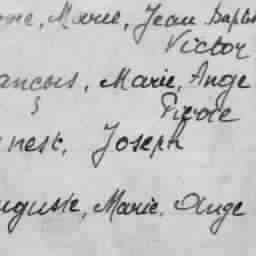 Marie, Jean Baptis
Victor
ancois, Marie, Ange
Pierre
nest, Joseph
uguste, Marie, Ange